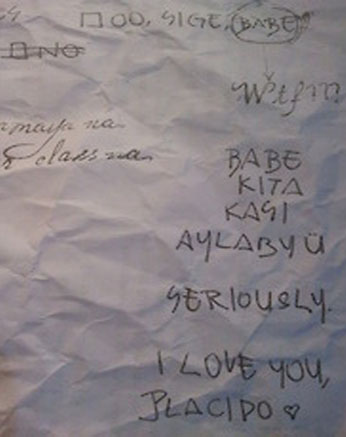 □ OO, SIGE, BABE
□ NO
Wtf!!!
maya na
class na
BABE
KITA
KASI
AYLABYÜ
SERIOUSLY.
I LOVE YOU,
PLACIDO ♡